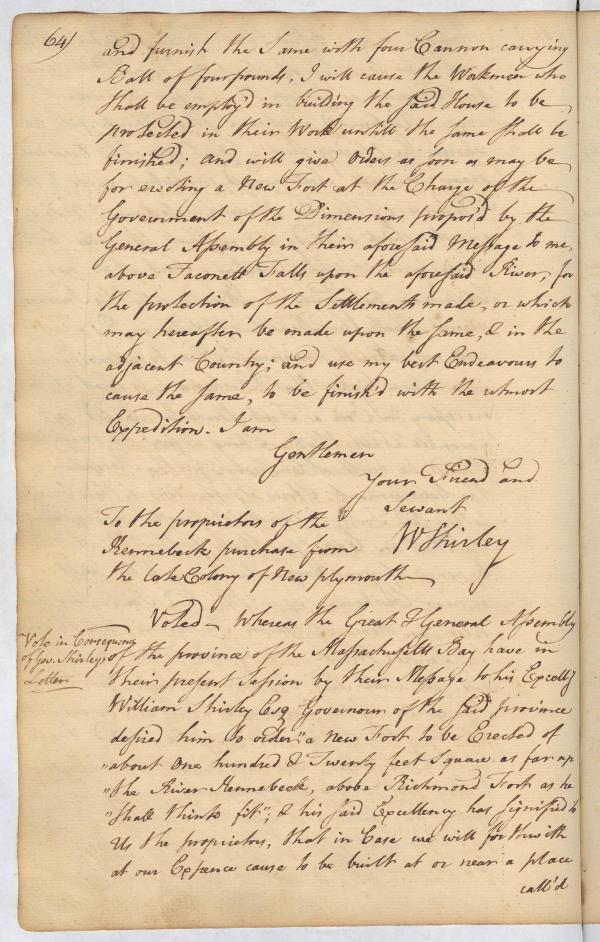 64)
and furnish the Same with four Cannon carrying
Ball of four pounds, I will cause the Workmen who
shall be employ'd in building the said House to be
protected in their Work untill the same shall be
finished; and will give Orders as soon as may be
for erecting a New Fort at the Charge of the
Government of the Dimensions propos'd by the
General Assembly in their aforesaid Message to me,
above Taconett Falls upon the aforesaid River, for
the protection of the Settlements made, or which
may hereafter be made upon the same, & in the
adjacent Country; and use my best Endeavours to
cause the same, to be finish'd with the utmost
Expedition. I am
Gentlemen
Your Friend and
Servant
W Shirley
To the proprietors of the
Kennebeck purchase from
the late Colony of New plymouth
Vote in Consequence
of Gov. Shirleys
Letter
Voted - Whereas the Great & General Assembly
of the province of the Massachusetts Bay have in
their present Session by their Message to his Excelly
William Shirley Esq Governour of the said province
desired him to order "a New Fort to be Erected of
"about One hundred & Twenty feet Square as far up
"the River Kennebeck, above Richmond Fort as he
"shall think fit"; & his said Excellency has signified to
Us the proprietors, that in Case we will forthwith
at our Expence cause to be built at or near a place
call'd